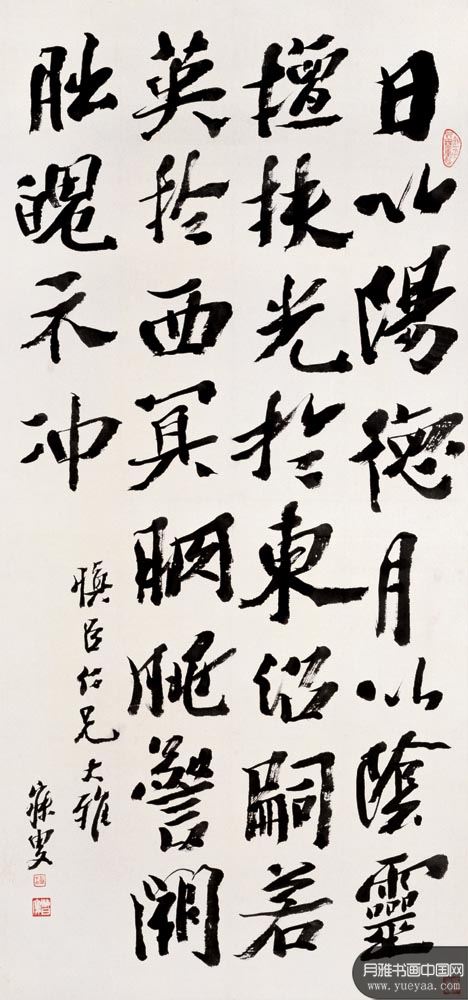 日以陽德月以陰靈
擅扶光於東沼嗣若
英於西冥朒朓警闕
朏魄示冲
慎臣仁兄大雅
寐叟
月雅书画中国网
www.yueyaa.com